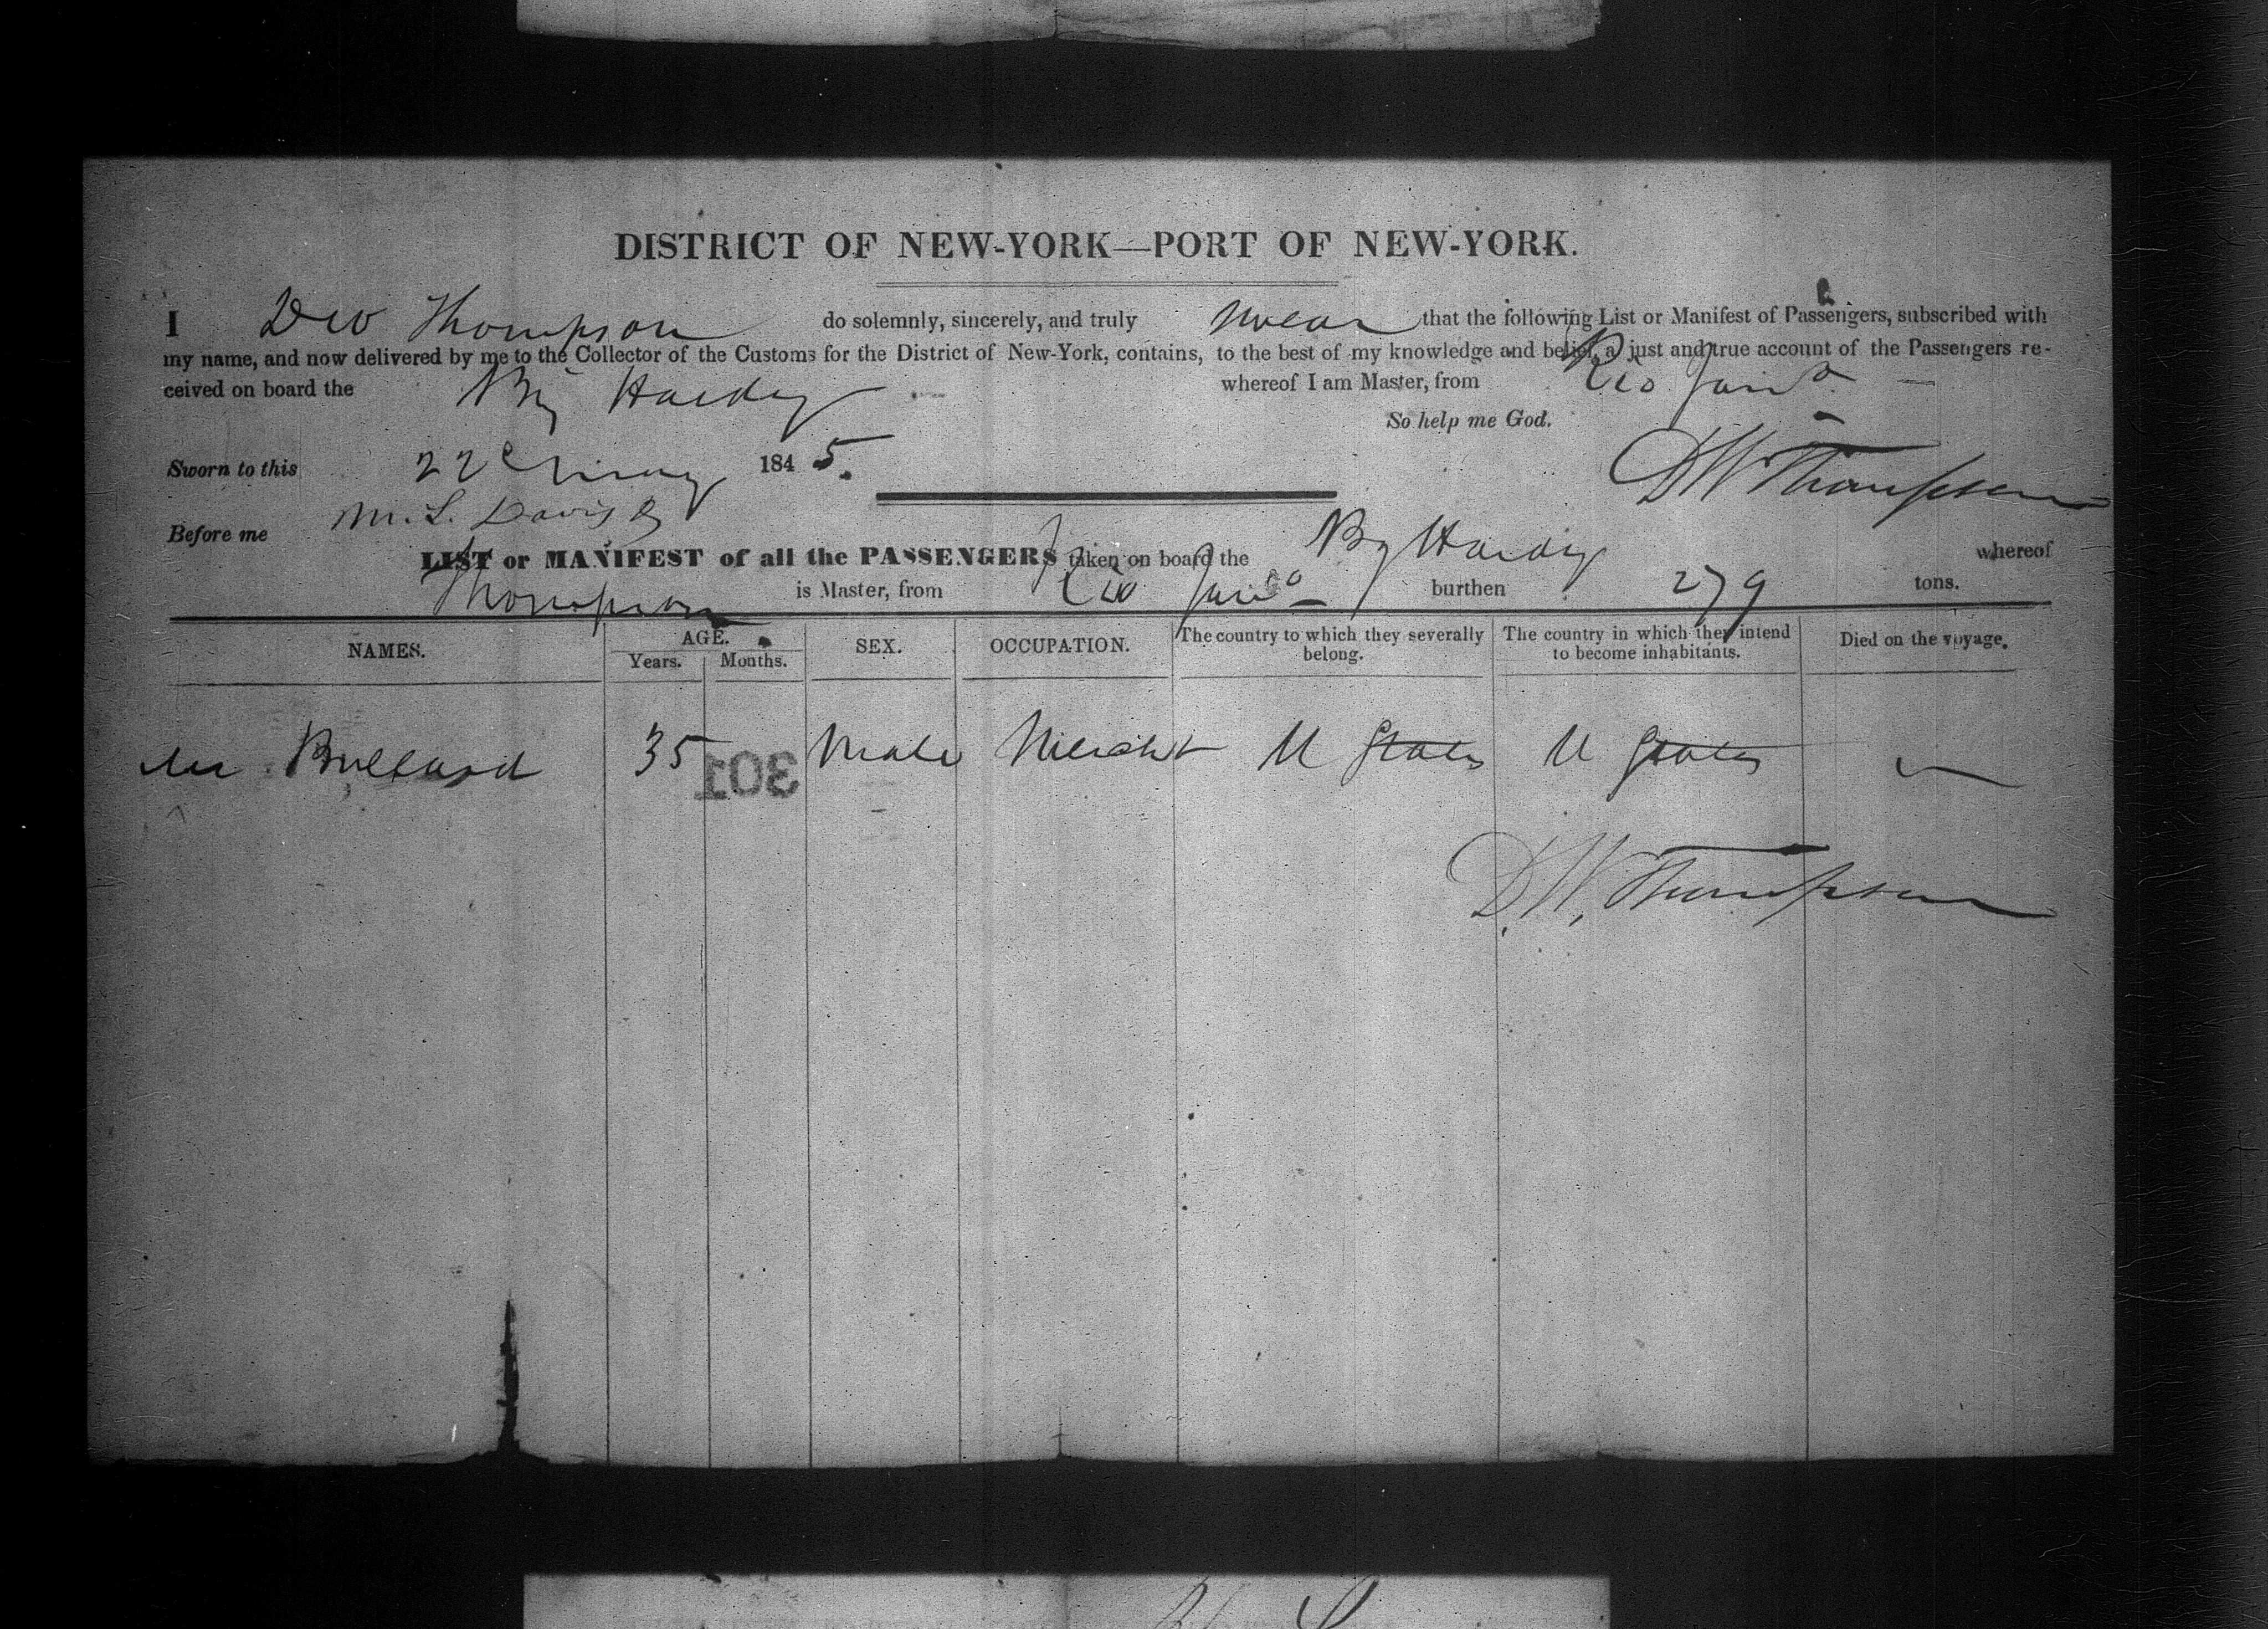 DISTRICT OF NEW-YORK—PORT OF NEW-YORK.
I D W Thompson do solemnly, sincerely, and truly swear that the following List or Manifest of Passengers, subscribed with
my name, and now delivered by me to the Collector of the Customs for the District of New-York, contains, to the best of my knowledge and belief, a just and true account of the Passengers re-
ceived on board the Brig Hardy whereof I am Master, from Rio Janro
So help me God.
Sworn to this 22d May 1845.
D W Thompson
Before me M. L. Davis
LIST or MANIFEST of all the PASSENGERS taken on board the Brg Hardy whereof
Thompson is Master, from Rio Janro burthen 279 tons.
NAMES. AGE. SEX. OCCUPATION. The country to which they severally belong. The country in which they intend to become inhabitants. Died on the voyage.
Years. Months.
Mr Bullard 35 Male Mercht U States U States
301
D. W. Thompson